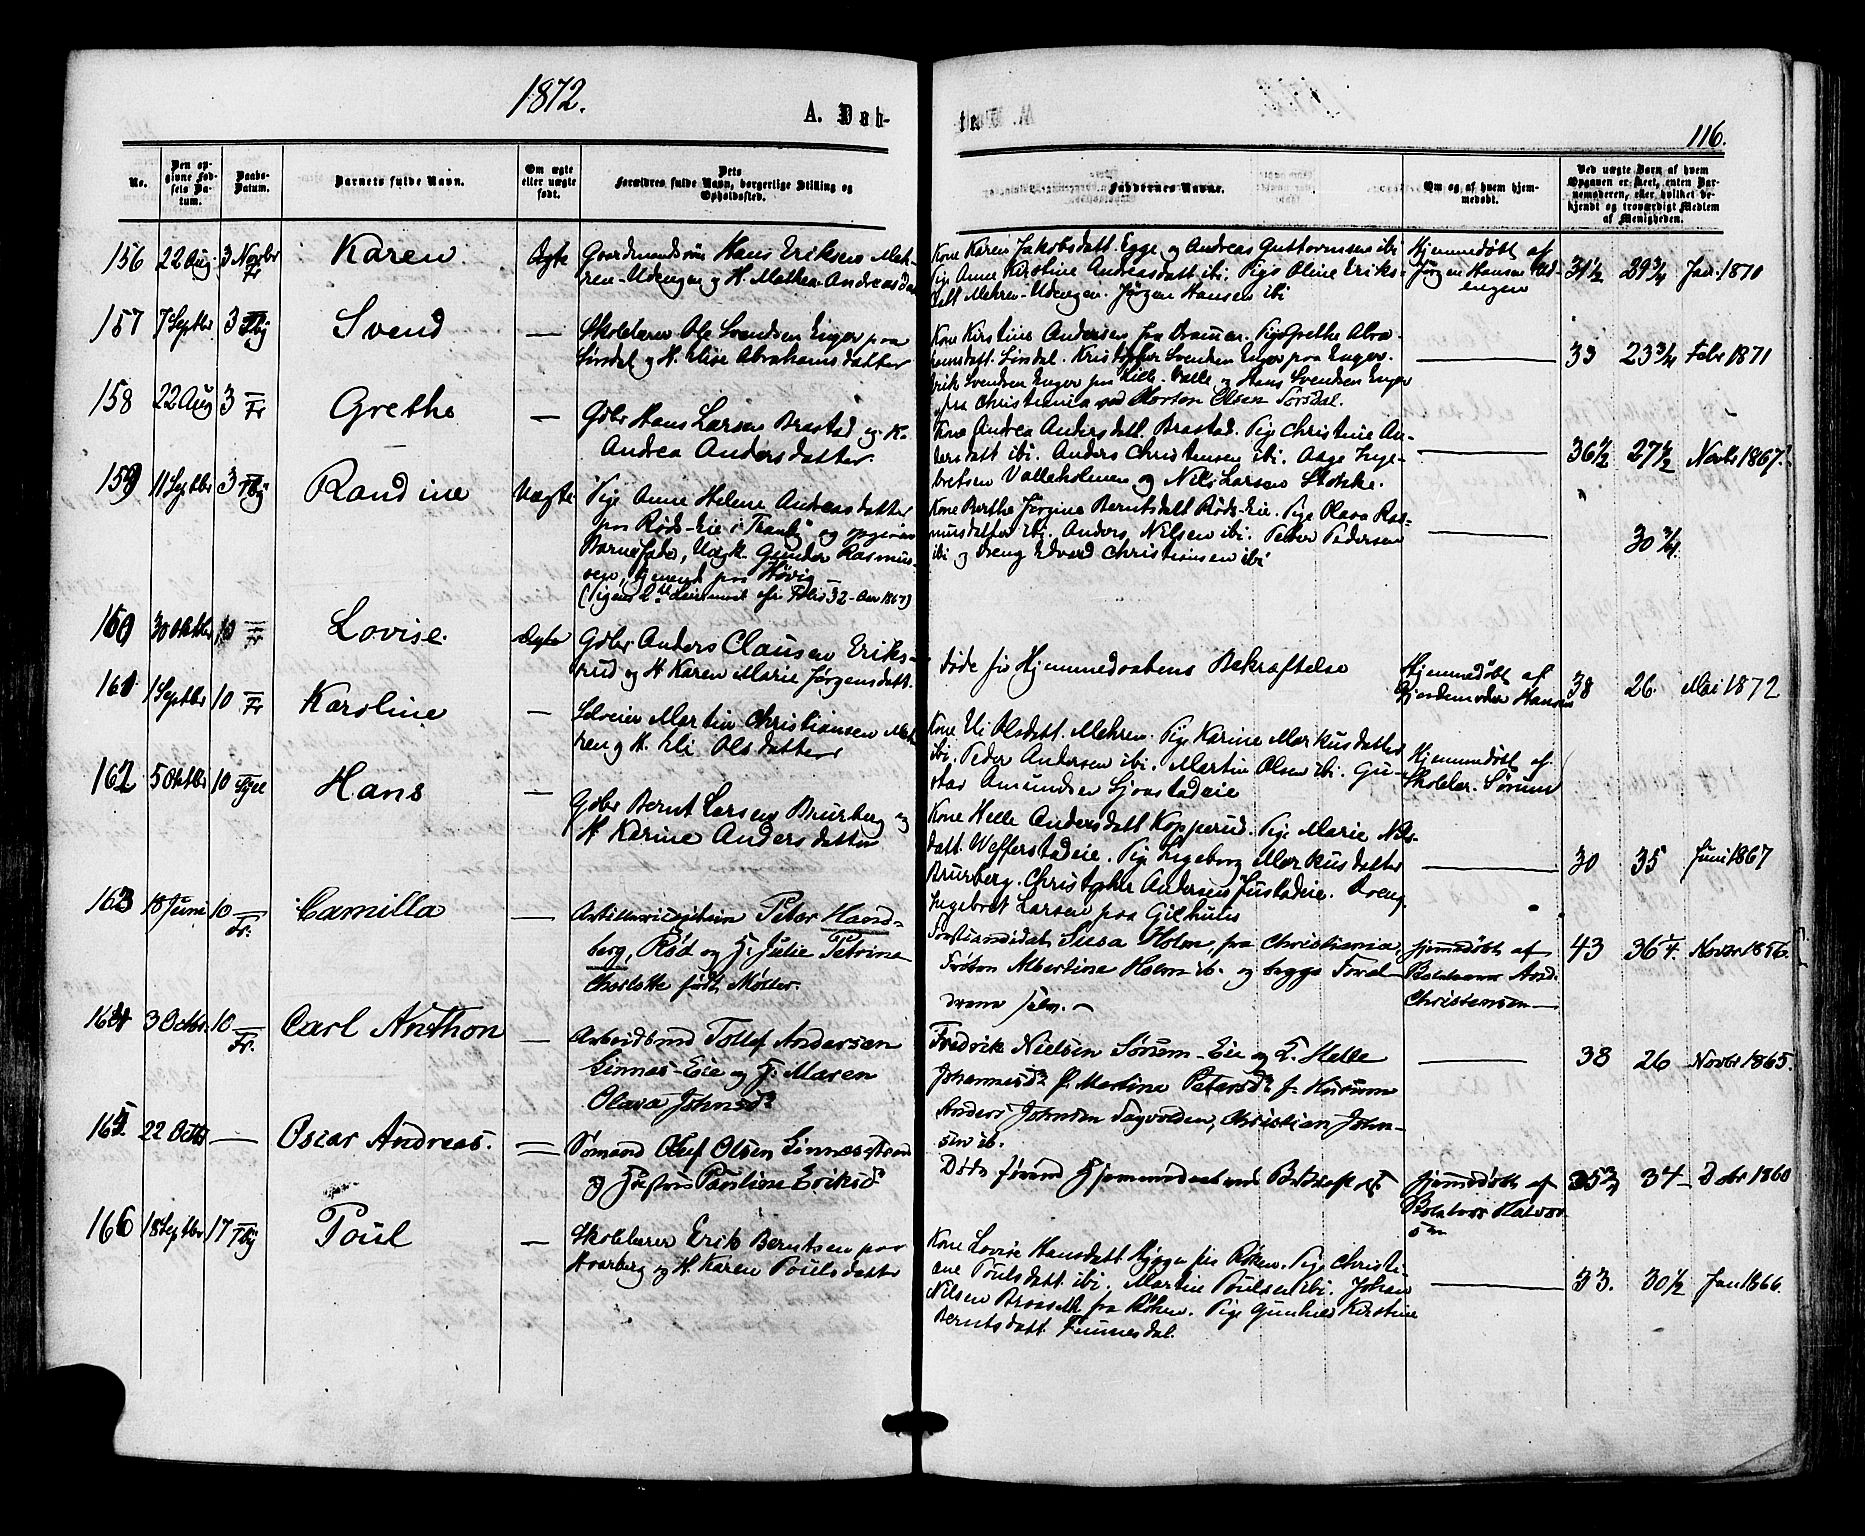 1872.
A. Døb-
te
116.
No.
Den op-
givne Fød-
sels Da-
tum.
Daabs-
Datum.
Barnets fulde Navn.
Om ægte
eller uægte
født.
Dets
Forældres fulde Navn, borgerlige Stilling og
Opholdssted.
Faddernes Navne.
Om og af hvem hjem-
medøbt.
Ved uægte Barn af hvem
Opgaven er skeet, enten Bar-
nemoderen, eller hvilket be-
kjendt og troværdigt Medlem
af Menigheden.
156 22 Aug 3 Novbr Fr Karen Ægte Gaardmandssøn Hans Eriksen Meh-
ren-Udengen og H. Mathea Andreasdatt
Kone Karen Jakobsdatt. Egge og Andreas Guttormsen ibi
Pige Anne Kirstine Andreasdatt ibi. Pige Oline Eriks-
datt Mehren-Udengen. Jørgen Hansen ibi
Hjemmedøbt af
Jørgen Hansen Ud-
engen
31½ 29¾ Jan. 1870
157 7 Septbr 3 Tbg Svend — Skolelærer Ole Svendsen Enger paa
Linsdal og H. Elise Abrahamsdatter
Kone Kirstine Andersen fra Dramm. Pige Grethe Abra-
hamsdatt. Linsdal. Kristopher Svendsen Enger paa Enger.
Erik Svendsen Enger paa Lille-Valle og Hans Svendsen Enger
fra Christiania ved Morten Olsen Torsdal.
33 23¾ Febr 1871
158 22 Aug 3 Fr Grethe — Gdbr Hans Larsen Brastad og K.
Andrea Andersdatter.
Kone Andrea Andersdatt. Brastad. Pige Christine An-
dersdatt ibi. Anders Christensen ibi. Aage Inge-
bretsen Valleholmen og Nils Larsen Stokke.
36½ 27½ Novbr 1867.
159 11 Septbr 3 Tbg Randine Uægte Pige Anne Helene Andreasdatter
paa Røds-Eie i Tranby og opgiven
Barnefader, Ungk. Gunder Rasmus-
sen, tjenende paa Høvig
(Pigens 2det Leiermaal cfr Folio 32 - Aar 1867)
Kone Berthe Jørgine Berntsdatt Røds-Eie. Pige Olava Ras-
musdatter ibi. Anders Nilsen ibi. Peder Pedersen
ibi og Dreng Edvard Christiansen ibi
30¾
160 30 Oktbr 10 Fr Lovise. Ægte Gdbr Anders Clausen Eriks-
rud og H. Karen Marie Jørgensdatt.
Døde før Hjemmedaabens Bekræftelse
Hjemmedøbt af
Gjordemoder Hansen
38 26. Mai 1872
161 1 Septbr 10 Fr Karoline — Selveier Martin Christiansen Meh-
ren og H. Eli Olsdatter
Kone Eli Olsdatt Mehren. Pige Karine Markusdatter
ibi. Peder Andersen ibi. Martin Olsen ibi. Gu-
stav Amundsen Sjaastadeie
Hjemmedøbt af
Skolelær. Sørum
162 5 Oktbr 10 Syll Hans — Gdbr Bernt Larsen Brurberg og
H. Karine Andersdatter
Kone Helle Andersdatt Kopperud. Pige Marie Nils-
datt. Wefferstadeie. Pige Ingeborg Markusdatter
Brurberg. Christopher Andersen Justadeie. Dreng
Ingebret Larsen paa Gilhuus
30 35 Juni 1867
163 18 Juni 10 Fr. Camilla — Artillericapitain Peter Hand-
berg, Rød og H. Julie Petrine
Charlotte født Møller.
Forstkandidat Susa Holm fra Christiania,
Frøken Albertine Holm ib. og begge Foræl-
drene selv.
Hjemmedøbt af
Kirkesanger And.
Christensen
43 36¼ Novbr 1856.
164 3 Octbr 10 Fr. Carl Anthon — Arbeidsmd Tollef Andersen
Linnæs-Eie og H. Maren
Olava Johnsdr
Fredrik Nielsen Sørum-Eie og H. Helle
Johannesdr P. Martine Petersdr f. Hurum
Anders Johnsen Tagvolden, Christian John-
sen ib.
38 26 Novbr 1865.
165 22 Octbr — Oscar Andreas. — Sømand Oluf Olsen Linnæsstrand
og Hustru Pauline Eriksdr
Døde førend Hjemmedaabens Bekræft.
Hjemmedøbt af
Halvor-
sen
35¾ 34 Dcbr 1860
166 18 Septbr 17 Tbg Poul — Skolelærer Erik Berntsen paa
Hvarberg og H. Karen Poulsdatter
Kone Lovise Hansdatt Hyggen fra Røken. Pige Christi-
ane Poulsdatt ibi. Martin Poulsen ibi. Johan
Nilsen Braasæt fra Røken. Pige Gunhild Kirstine
Berntsdatt Finnesdal.
33. 30½ Jan 1866.